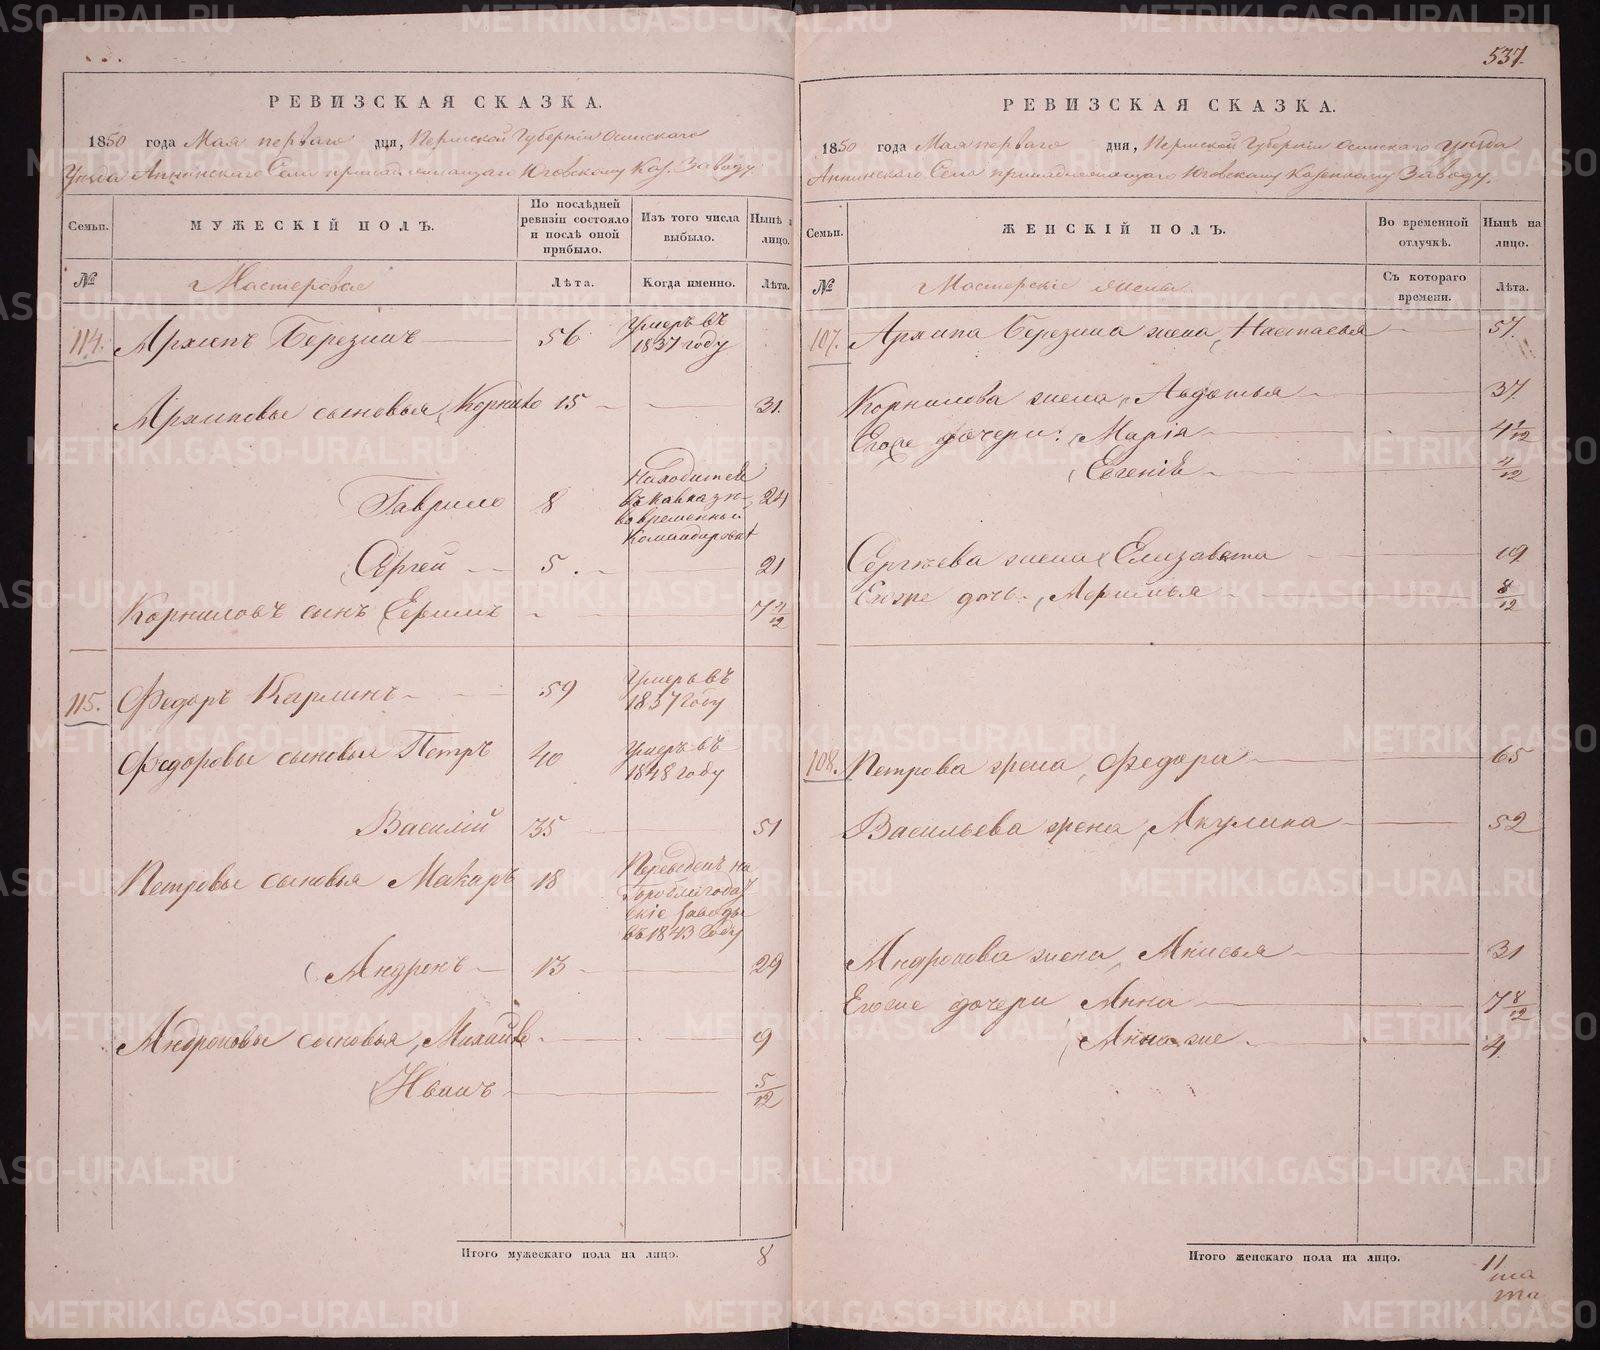 РЕВИЗСКАЯ СКАЗКА.
1850 года Мая перваго дня, Пермской Губерніи Осинскаго
Уѣзда Аннинскаго Села принадлежащаго Юговскому Каз. Заводу.
Семьи.
МУЖЕСКІЙ ПОЛЪ.
По послѣдней ревизіи состояло и послѣ оной прибыло.
Изъ того числа выбыло.
Нынѣ на лицо.
№
Мастеровыя
Лѣта.
Когда именно.
Лѣта.
114. Архипъ Березинъ 56 Умеръ въ 1837 году
Архиповы сыновья, Корнило 15 31.
Гаврило 8 Находится въ Кавказѣ во временной Командировкѣ 24
Сергѣй 5 21
Корниловъ сынъ Ефимъ 7 4/12
115. Федоръ Карлинъ 59 Умеръ въ 1837 году
Федоровы сыновья Петръ 40 Умеръ въ 1848 году
Василій 35 51
Петровы сыновья Макаръ 18 Переведенъ на Гороблагодатскіе Заводы въ 1843 году
Андронъ 13 29
Андроновы сыновья, Михайло 9
Иванъ 5/12
Итого мужескаго пола на лицо. 8
537.
РЕВИЗСКАЯ СКАЗКА.
1850 года Мая перваго дня, Пермской Губерніи Осинскаго Уѣзда
Аннинскаго Села принадлежащаго Юговскому Казенному Заводу.
Семьи.
ЖЕНСКІЙ ПОЛЪ.
Во временной отлучкѣ.
Нынѣ на лицо.
№
Мастерскіе жены
Съ котораго времени.
Лѣта.
107. Архипа Березина жена, Настасья 57.
Корнилова жена, Авдотья 37.
Егоже дочери: Марія 4 1/12
Евгенія 4/12
Сергѣева жена Елизавета 19
Егоже дочь, Маримья 8/12
108. Петрова жена, Федора 65
Васильева жена, Акулина 52
Андронова жена, Анисья 31
Егоже дочери Анна 7 8/12
Анна же 4.
Итого женскаго пола на лицо. 11
METRIKI.GASO-URAL.RU